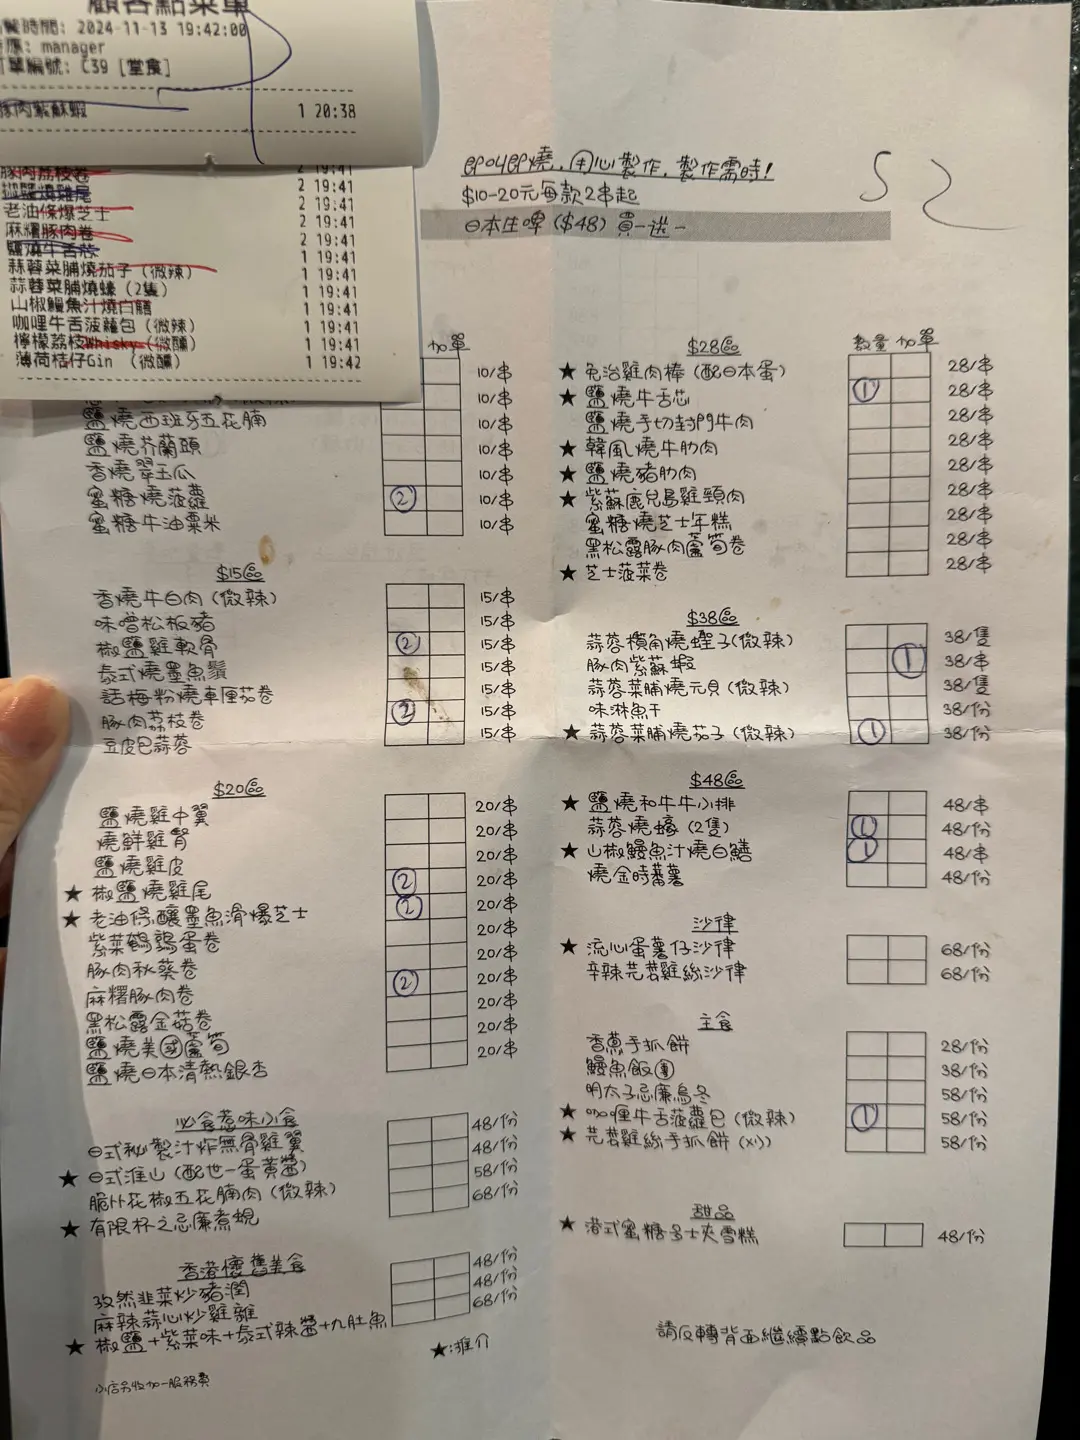 顧客點菜單
餐時間: 2024-11-13 19:42:00
manager
單編號: C39 [堂食]
豚肉紫蘇蝦 1 20:38
豚肉荔枝卷 2 19:41
椒鹽燒雞尾 2 19:41
老油條爆芝士 2 19:41
麻糬豚肉卷 2 19:41
鹽燒牛舌芯 1 19:41
蒜蓉菜脯燒茄子 (微辣) 1 19:41
蒜蓉菜脯燒蠔 (2隻) 1 19:41
山椒鰻魚汁燒白鱔 1 19:41
咖哩牛舌菠蘿包 (微辣) 1 19:41
檸檬荔枝Whisky (微醺) 1 19:41
薄荷桔仔Gin (微醺) 1 19:42
即叫即燒,用心製作,製作需時!
$10-20元每款2串起
日本生啤 ($48) 買一送一
52
加單
10/串
鹽燒西班牙五花腩 10/串
鹽燒芥蘭頭 10/串
香燒翠玉瓜 10/串
蜜糖燒菠蘿 2 10/串
蜜糖牛油粟米 10/串
$15區
香燒牛白肉 (微辣) 15/串
味噌松板豬 15/串
椒鹽雞軟骨 2 15/串
泰式燒墨魚鬚 15/串
話梅粉燒車厘茄卷 15/串
豚肉荔枝卷 2 15/串
豆皮包蒜蓉 15/串
$20區
鹽燒雞中翼 20/串
燒鮮雞腎 20/串
鹽燒雞皮 20/串
★ 椒鹽燒雞尾 2 20/串
★ 老油條釀墨魚滑爆芝士 2 20/串
紫菜鵪鶉蛋卷 20/串
豚肉秋葵卷 20/串
麻糬豚肉卷 2 20/串
黑松露金菇卷 20/串
鹽燒美國蘆筍 20/串
鹽燒日本清熱銀杏 20/串
必食惹味小食
日式秘製汁炸無骨雞翼 48/份
★ 日式淮山 (配世一蛋黃醬) 48/份
脆卜花椒五花腩肉 (微辣) 58/份
★ 有限杯之忌廉煮蜆 68/份
香港懷舊美食
孜然韭菜炒豬潤 48/份
麻辣蒜心炒雞雜 48/份
★ 椒鹽+紫菜味+泰式辣醬+九肚魚 68/份
★:推介
小店另收加一服務費
$28區 數量 加單
★ 免治雞肉棒 (配日本蛋) 28/串
★ 鹽燒牛舌芯 1 28/串
鹽燒手切封門牛肉 28/串
★ 韓風燒牛肋肉 28/串
★ 鹽燒豬肋肉 28/串
★ 紫蘇鹿兒島雞頸肉 28/串
蜜糖燒芝士年糕 28/串
黑松露豚肉蘆筍卷 28/串
★ 芝士菠菜卷 28/串
$38區
蒜蓉欖角燒蟶子(微辣) 38/隻
豚肉紫蘇蝦 1 38/串
蒜蓉菜脯燒元貝 (微辣) 38/隻
味淋魚干 38/份
★ 蒜蓉菜脯燒茄子 (微辣) 1 38/份
$48區
★ 鹽燒和牛牛小排 48/串
蒜蓉燒蠔 (2隻) 1 48/份
★ 山椒鰻魚汁燒白鱔 1 48/串
燒金時蕃薯 48/份
沙律
★ 流心蛋薯仔沙律 68/份
辛辣芫荽雞絲沙律 68/份
主食
香蔥手抓餅 28/份
鰻魚飯團 38/份
明太子忌廉烏冬 58/份
★ 咖哩牛舌菠蘿包 (微辣) 1 58/份
★ 芫荽雞絲手抓餅 (凍) 58/份
甜品
★ 港式蜜糖多士夾雪糕 48/份
請反轉背面繼續點飲品